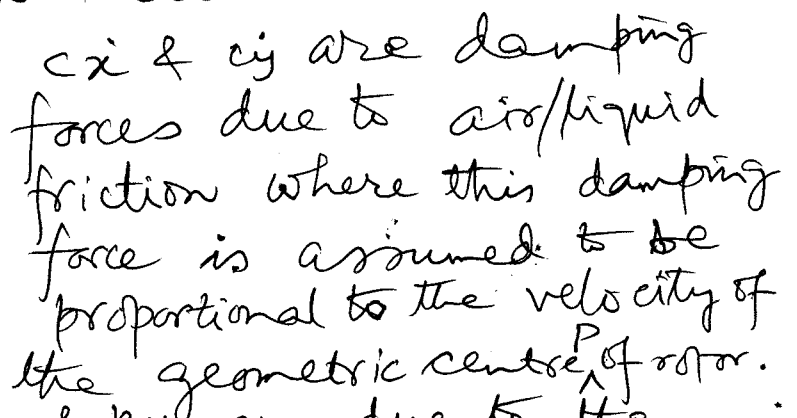 cẋ & cẏ are damping
forces due to air/liquid
friction where this damping
force is assumed to be
proportional to the velocity of
the geometric centre P of rotor.
due to the